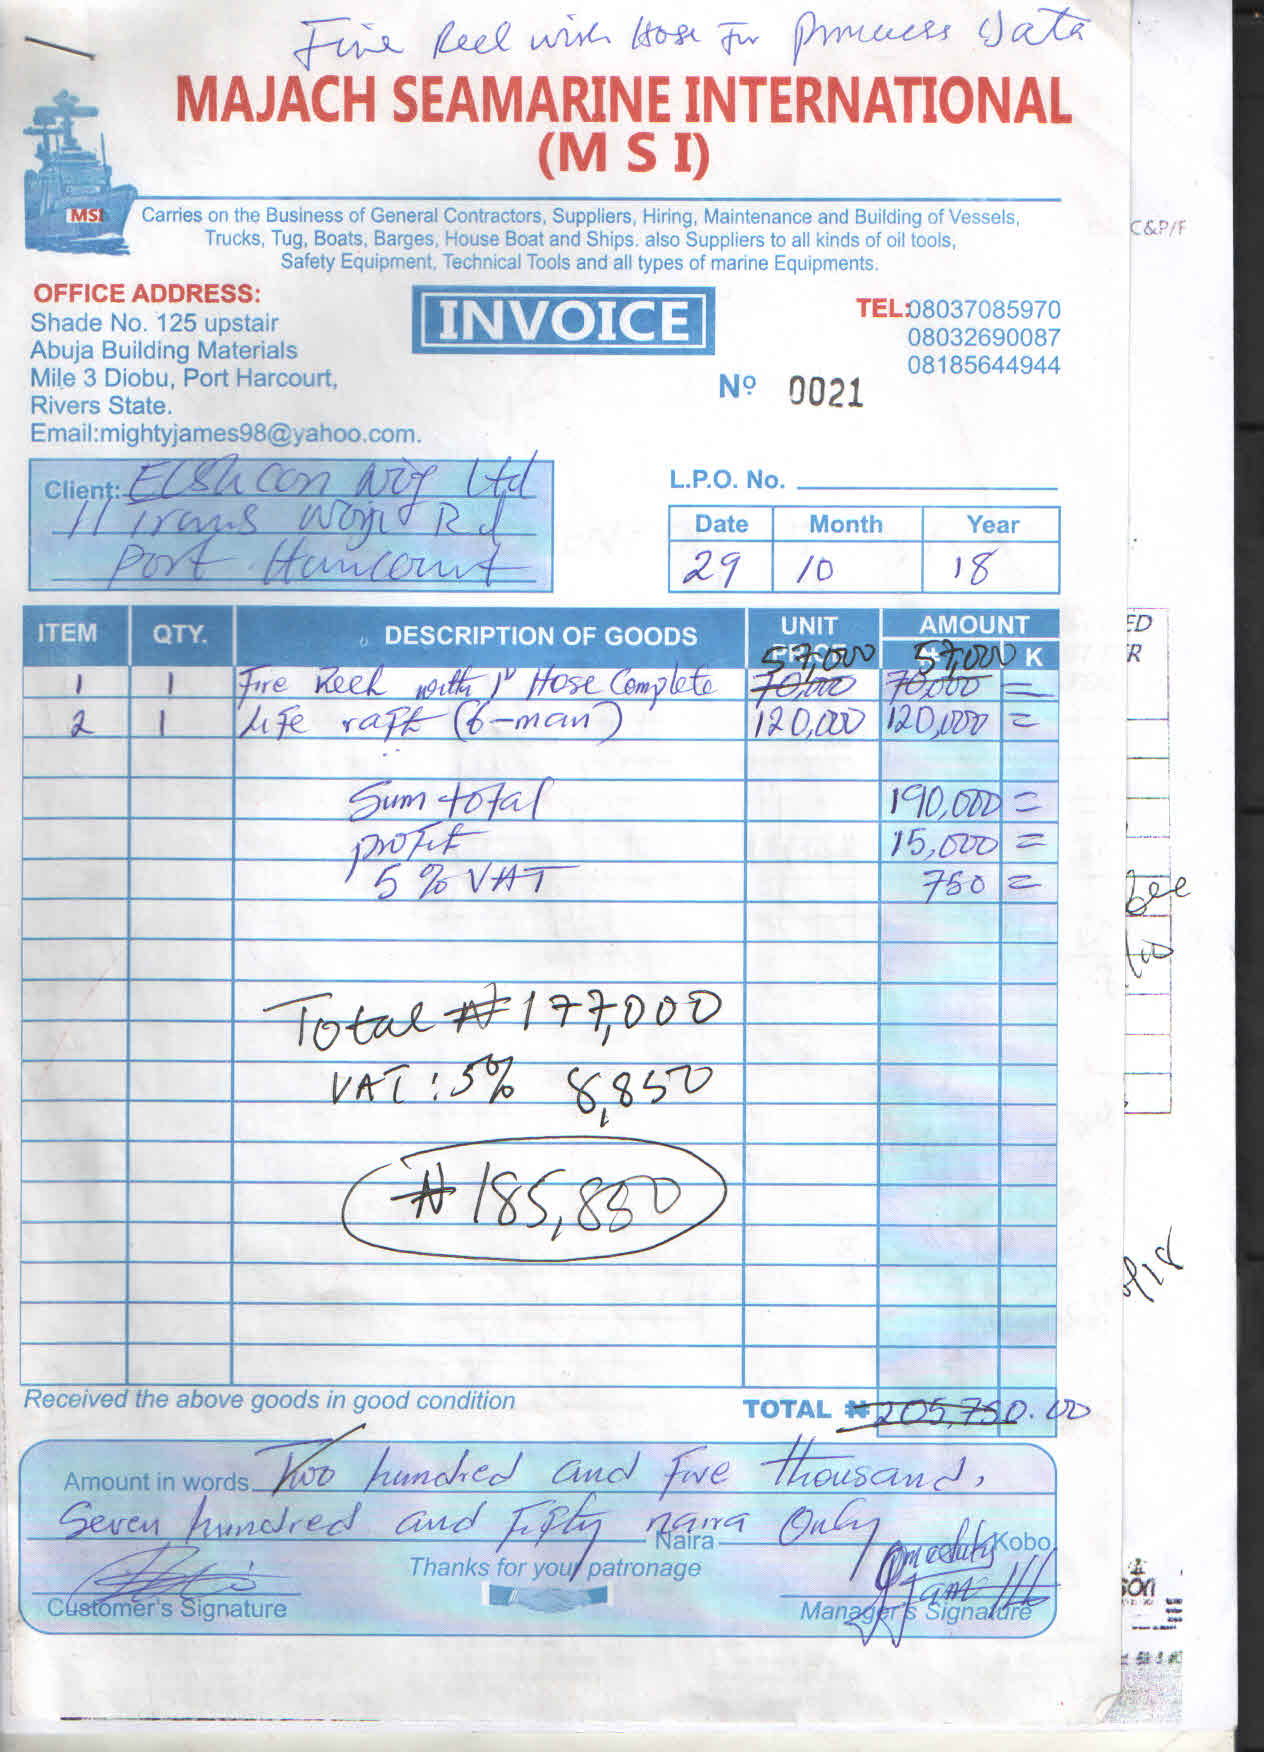 Fire Reel with Hose For Princess Data
MAJACH SEAMARINE INTERNATIONAL
(M S I)
MSI
Carries on the Business of General Contractors, Suppliers, Hiring, Maintenance and Building of Vessels,
Trucks, Tug, Boats, Barges, House Boat and Ships. also Suppliers to all kinds of oil tools,
Safety Equipment, Technical Tools and all types of marine Equipments.
OFFICE ADDRESS:
Shade No. 125 upstair
Abuja Building Materials
Mile 3 Diobu, Port Harcourt,
Rivers State.
Email:mightyjames98@yahoo.com.
INVOICE
TEL:08037085970
08032690087
08185644944
Nº 0021
Client: Elshcon Nig Ltd
11 Trans Woji Rd
Port Harcourt
L.P.O. No.
Date Month Year
29 10 18
ITEM QTY. DESCRIPTION OF GOODS UNIT PRICE AMOUNT ₦ K
57,000 57,000
1 1 Fire Reel with 1" Hose Complete 70,000 70,000 =
2 1 Life raft (6-man) 120,000 120,000 =
Sum total 190,000 =
profit 15,000 =
5% VAT 750 =
Total ₦ 177,000
VAT: 5% 8,850
₦ 185,850
Received the above goods in good condition
TOTAL ₦ 205,750.00
Amount in words Two hundred and Five thousand,
Seven hundred and Fifty naira Only
Naira Kobo
Thanks for your patronage
Customer's Signature
Manager's Signature
C&P/F